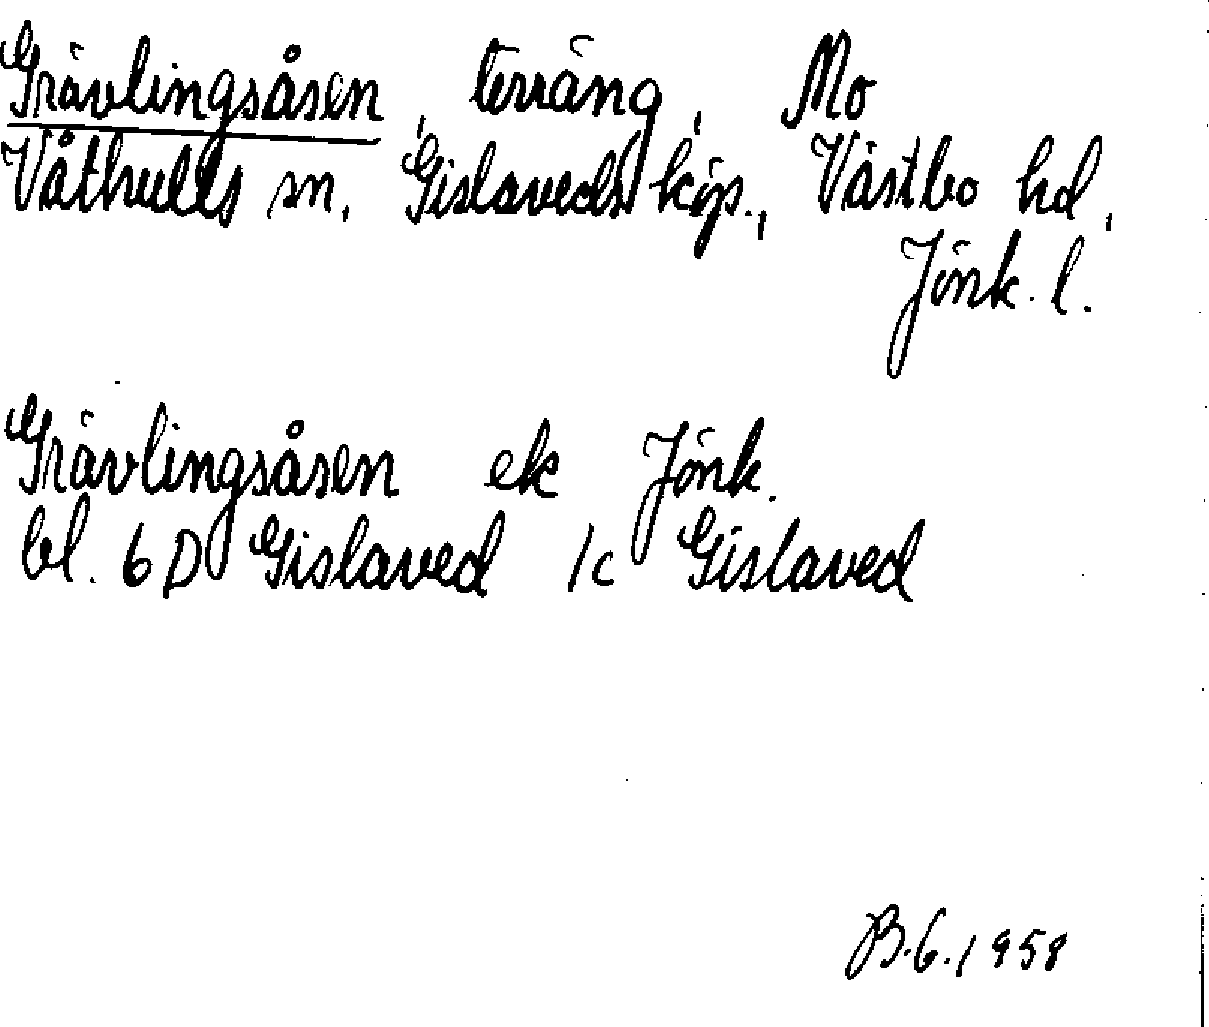 Grävlingsåsen, terräng, Mo
Våthults sn, Gislaveds köp., Västbo hd,
Jönk. l.
Grävlingsåsen ek Jönk.
bl. 6 D Gislaved 1c Gislaved
B.G. 1958